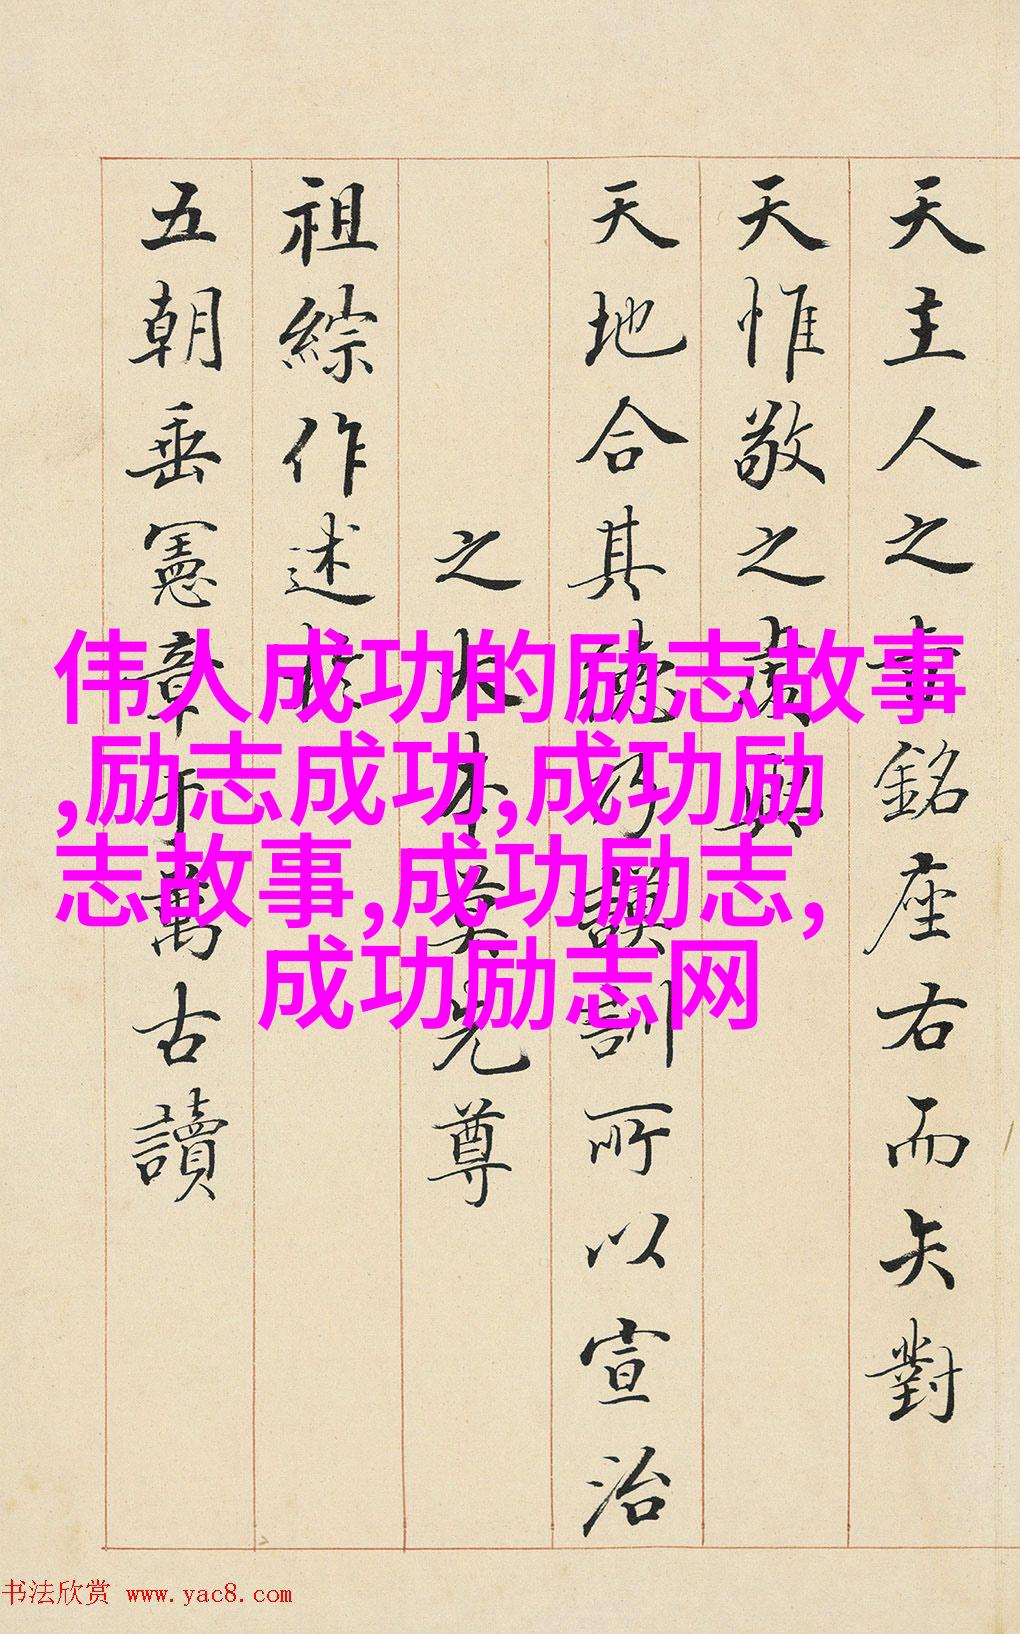 天主人之書銘座右而矢對
天惟敬之虔與
天地合其德 謨訓所以宣治
之大本莫先尊
祖綜作述
五朝垂憲章於萬古讀
伟人成功的励志故事
,励志成功,成功励
志故事,成功励志,
成功励志网
书法欣赏 www.yac8.com